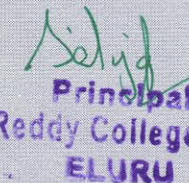 Principal
Reddy College
ELURU